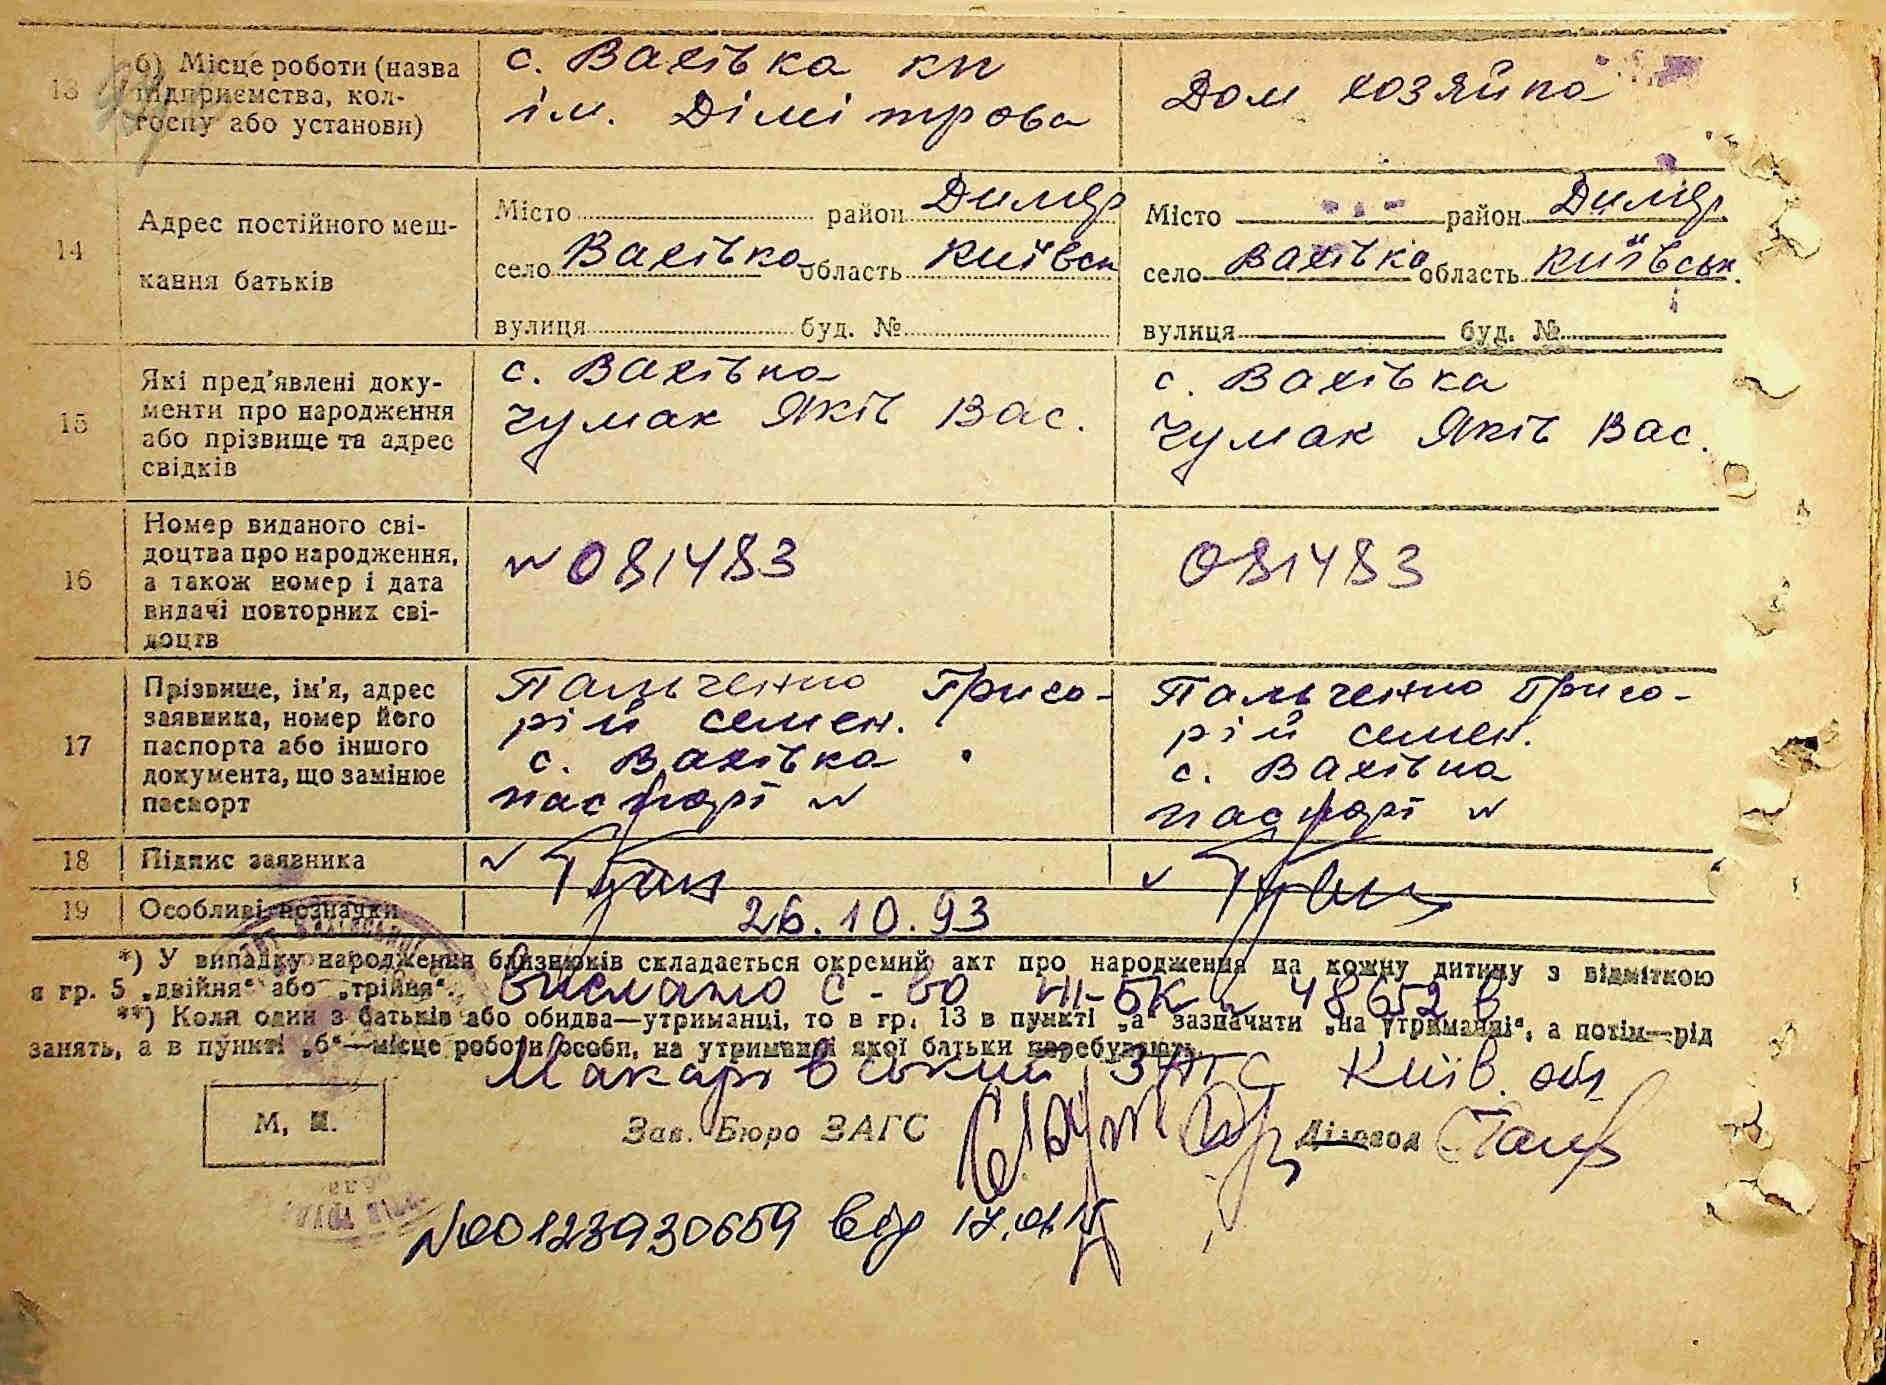 13
б) Місце роботи (назва
підприємства, кол-
госпу або установи)
с. Вахівка кп
ім. Дімітрова
Дом хозяйка
14
Адрес постійного меш-
кання батьків
Місто район Димер
село Вахівка область Київськ
вулиця буд. №
Місто район Димер
село Вахівка область Київськ.
вулиця буд. №
15
Які пред'явлені доку-
менти про народження
або прізвище та адрес
свідків
с. Вахівка
Чумак Яків Вас.
с. Вахівка
Чумак Яків Вас.
16
Номер виданого сві-
доцтва про народження,
а також номер і дата
видачі повторних сві-
доцтв
N 081483
081483
17
Прізвище, ім'я, адрес
заявника, номер його
паспорта або іншого
документа, що замінює
паспорт
Пальченко Григо-
рій Семен.
с. Вахівка
паспорт N
Пальченко Григо-
рій Семен.
с. Вахівка
паспорт N
18 Підпис заявника
19 Особливі позначки
26.10.93
*) У випадку народження близнюків складається окремий акт про народження на кожну дитину з відміткою
в гр. 5 „двійня“ або „трійня“.
Вислано с-во III-БК N 48652 в
**) Коли один з батьків або обидва—утриманці, то в гр. 13 в пункті „а“ зазначити „на утриманні“, а потім—рід
занять, а в пункті „б“—місце роботи особи, на утриманні якої батьки перебувають.
Макарівський ЗАГС Київ. обл
М. П.
Зав. Бюро ЗАГС
Діловод
N00123930659 від